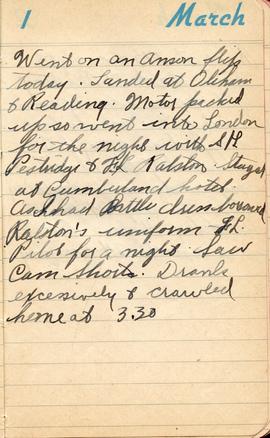 1 March
Went on an Anson flip
today. Landed at Odiham
& Reading. Motor packed
up so went into London
for the night with S/L
Pestridge & F/L Ralston. Stayed
at Cumberland hotel.
As I had Battle dress borrowed
Ralston's uniform F/L
Pilot for a night. Saw
Cam Shorts. Drank
excessively & crawled
home at 3.30